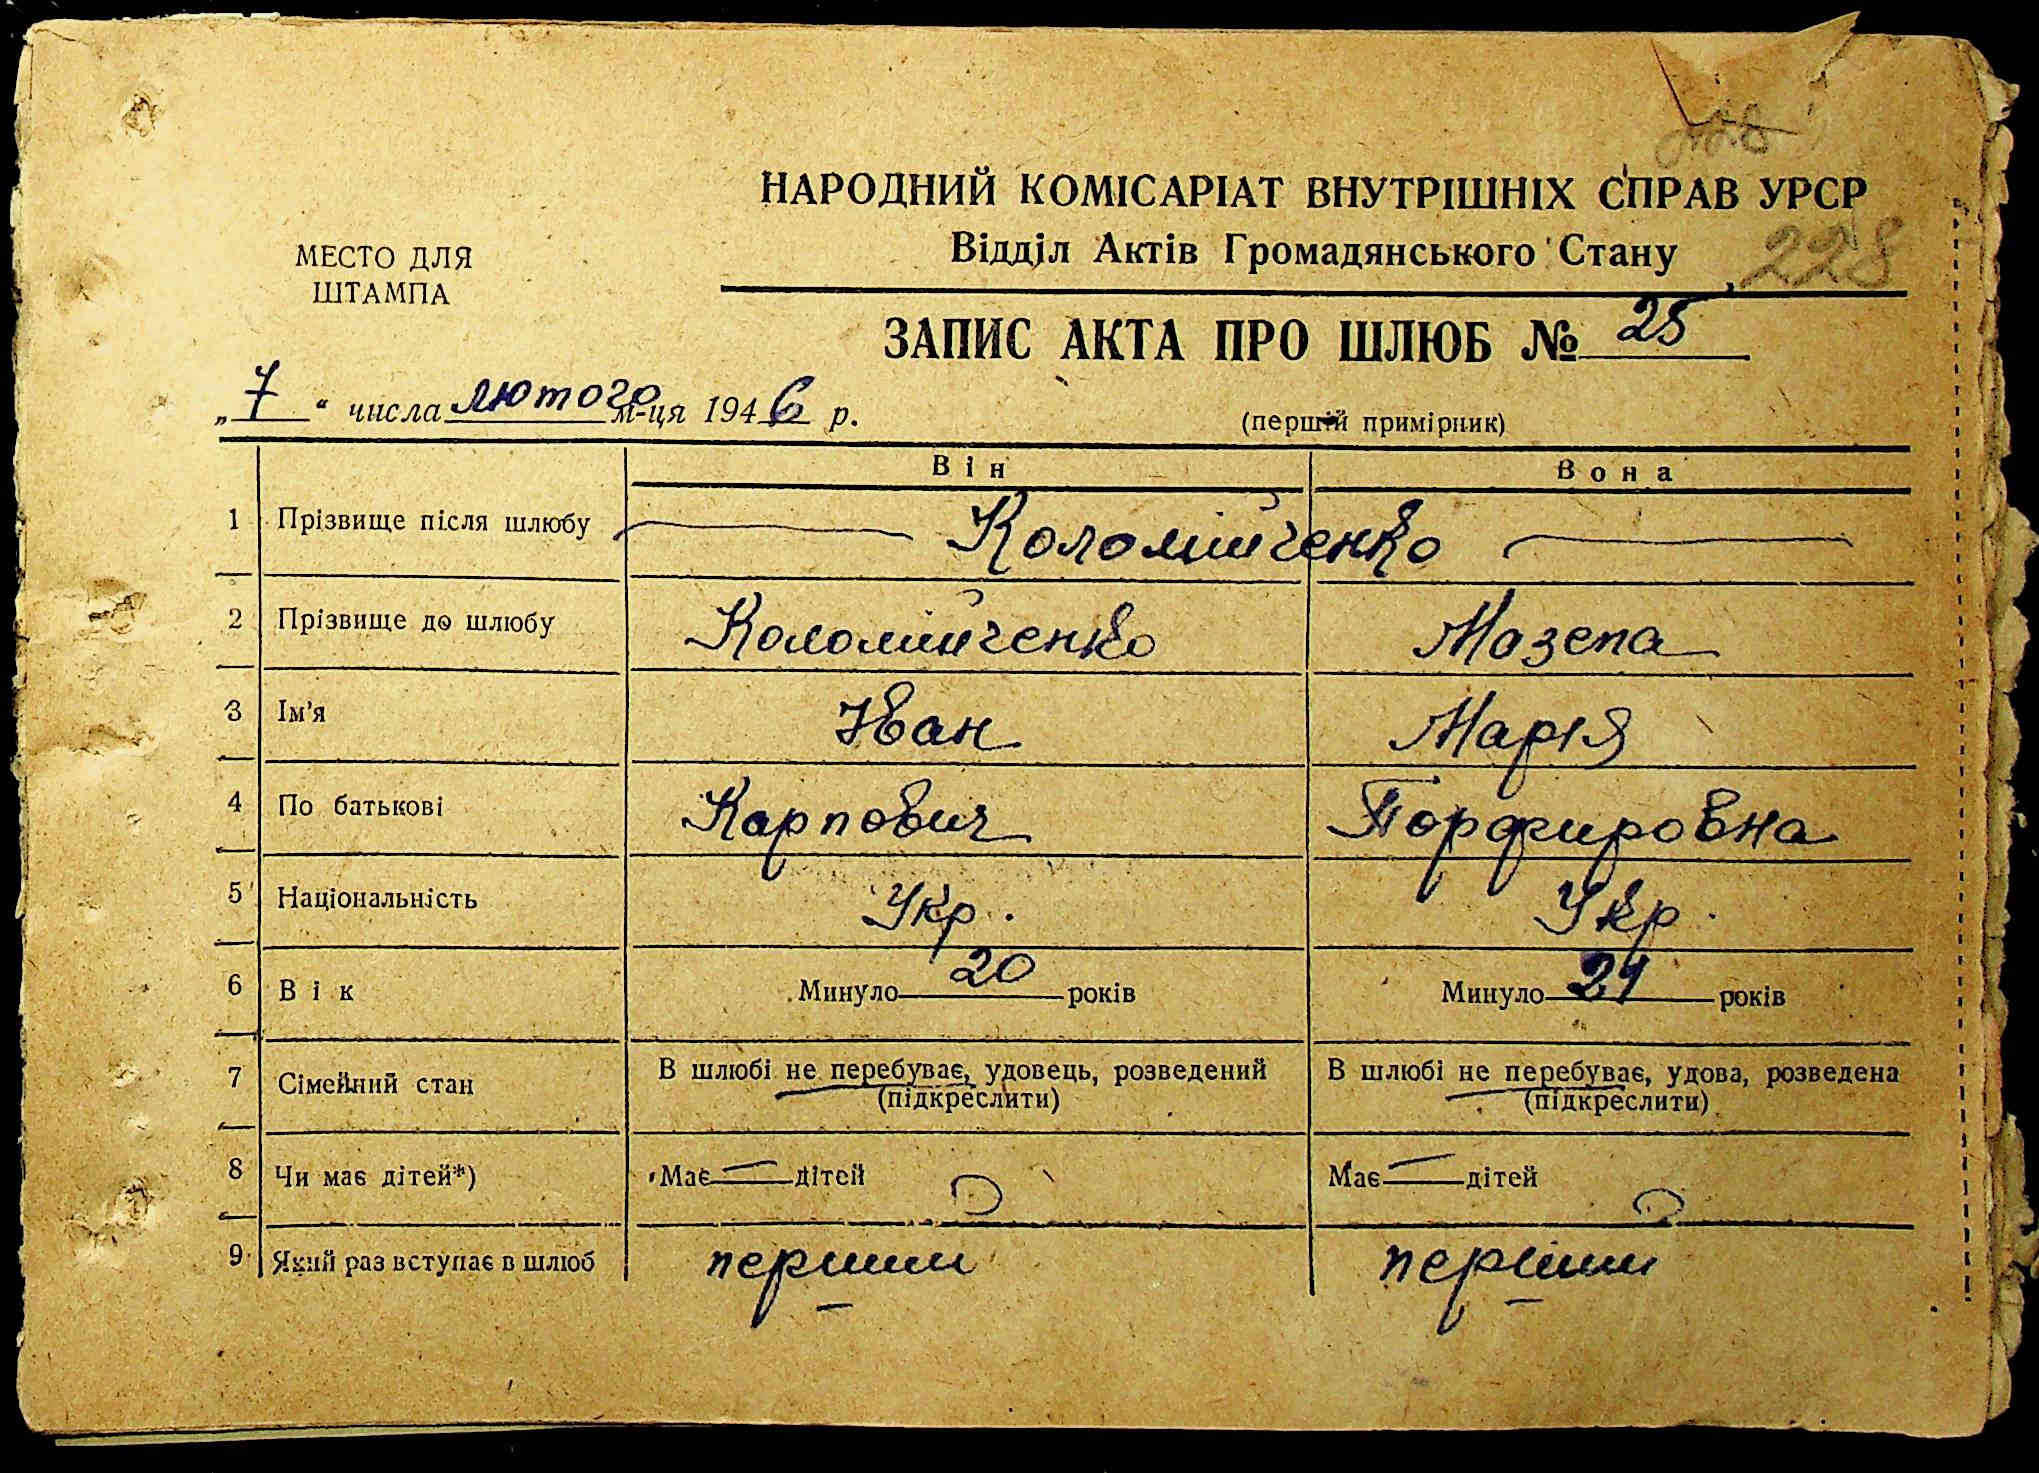 НАРОДНИЙ КОМІСАРІАТ ВНУТРІШНІХ СПРАВ УРСР
Відділ Актів Громадянського Стану
228
МЕСТО ДЛЯ
ШТАМПА
ЗАПИС АКТА ПРО ШЛЮБ № 25
„7“ числа лютого м-ця 1946 р.
(перший примірник)
Він Вона
1 Прізвище після шлюбу Коломійченко
2 Прізвище до шлюбу Коломійченко Мазепа
3 Ім'я Іван Марія
4 По батькові Карпович Порфировна
5 Національність Укр. Укр.
6 Вік Минуло 20 років Минуло 21 років
7 Сімейний стан В шлюбі не перебуває, удовець, розведений (підкреслити) В шлюбі не перебуває, удова, розведена (підкреслити)
8 Чи має дітей*) Має — дітей Має — дітей
9 Який раз вступає в шлюб перший перший